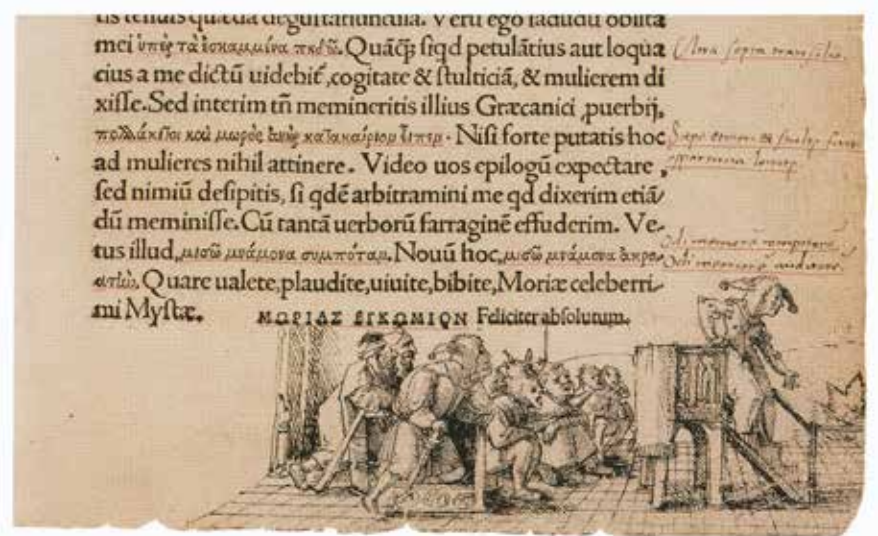 mei ὑπὲρ τὰ ἐσκαμμένα πηδῶ. Quãq̃; siqd petulãtius aut loqua
cius a me dictũ uidebit̃, cogitate & stulticiã, & mulierem di
xisse. Sed interim tñ memineritis illius Græcanici ꝓuerbij,
πολλάκι τοι καὶ μωρὸς ἀνὴρ κατακαίριον εἶπεν. Nisi forte putatis hoc
ad mulieres nihil attinere. Video uos epilogũ expectare,
sed nimiũ desipitis, si qdẽ arbitramini me qd dixerim etiã
dũ meminisse. Cũ tantã uerborũ farraginẽ effuderim. Ve-
tus illud, μισῶ μνάμονα συμπόταν. Nouũ hoc, μισῶ μνάμονα ἀκρο-
ατήν. Quare ualete, plaudite, uiuite, bibite, Moriæ celeberri-
mi Mystæ.
ΜΩΡΙΑΣ ΕΓΚΩΜΙΟΝ Feliciter absolutum.